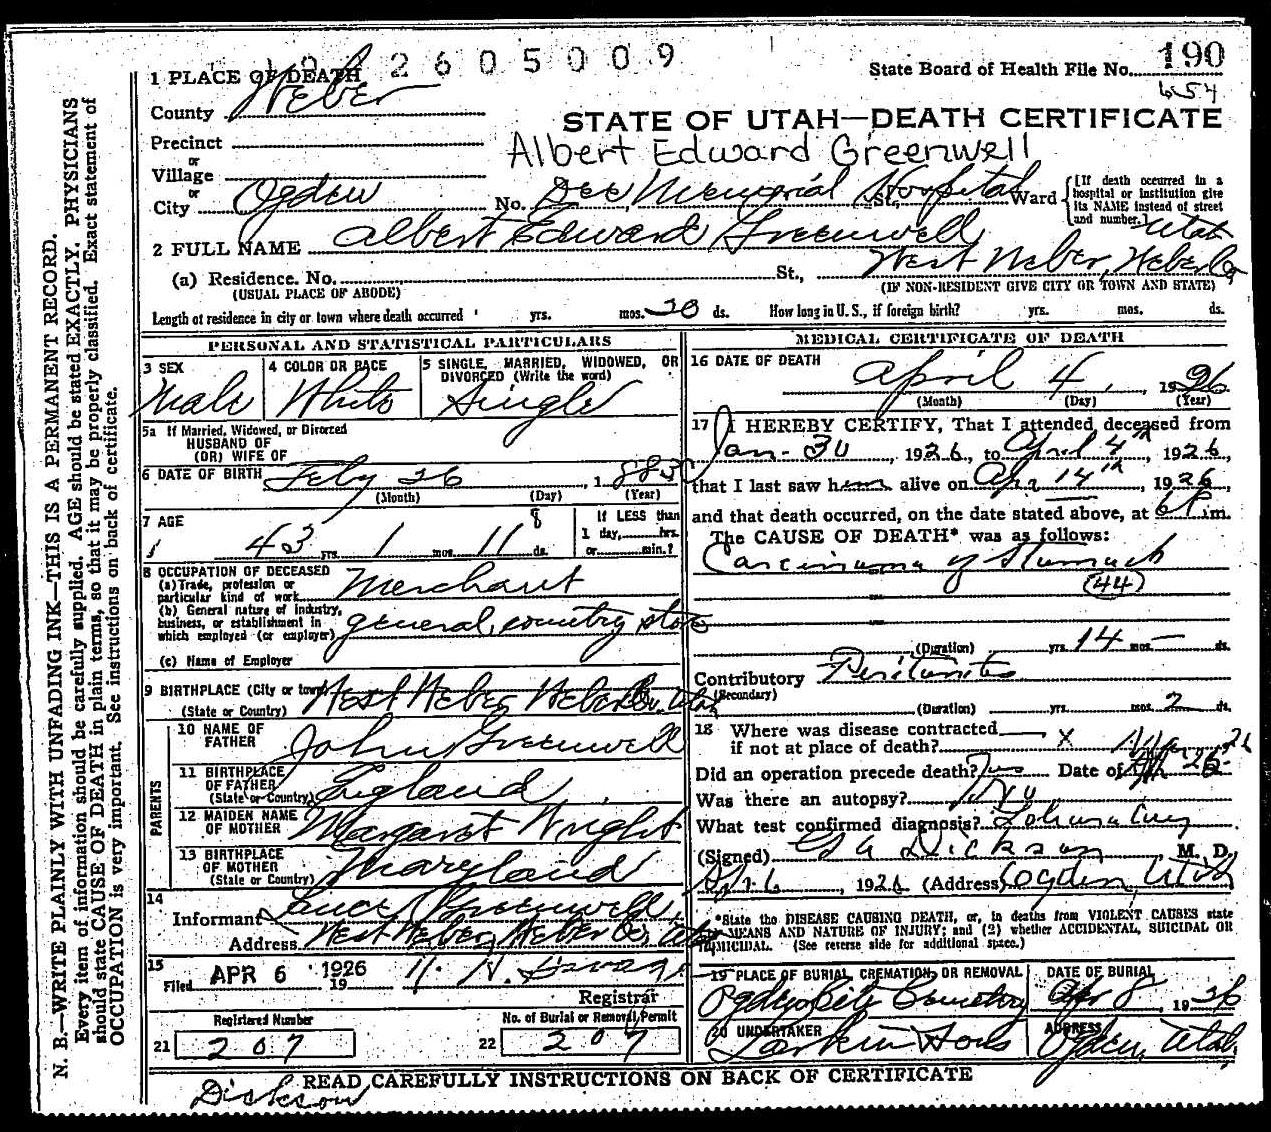 2605009
190
State Board of Health File No.
654
1 PLACE OF DEATH
County Weber
STATE OF UTAH—DEATH CERTIFICATE
Precinct
Albert Edward Greenwell
or
Village
or
City Ogden No. Dee Memorial Hospital St., Ward
[If death occurred in a hospital or institution give its NAME instead of street and number.]
Utah
2 FULL NAME Albert Edward Greenwell
(a) Residence. No. St., West Weber, Weber Co
(USUAL PLACE OF ABODE) (IF NON-RESIDENT GIVE CITY OR TOWN AND STATE)
Length of residence in city or town where death occurred yrs. mos. 20 ds. How long in U. S., if foreign birth? yrs. mos. ds.
PERSONAL AND STATISTICAL PARTICULARS
3 SEX Male
4 COLOR OR RACE White
5 SINGLE, MARRIED, WIDOWED, OR DIVORCED (Write the word) Single
5a If Married, Widowed, or Divorced
HUSBAND OF
(OR) WIFE OF
6 DATE OF BIRTH Feby 26, 1883
(Month) (Day) (Year)
7 AGE 43 yrs. 1 mos. 11 ds.
8
If LESS than
1 day, hrs.
or min.?
8 OCCUPATION OF DECEASED
(a) Trade, profession or
particular kind of work Merchant
(b) General nature of industry,
business, or establishment in
which employed (or employer) general country store
(c) Name of Employer
9 BIRTHPLACE (City or town) West Weber Weber Co. Utah
(State or Country)
PARENTS
10 NAME OF FATHER John Greenwell
11 BIRTHPLACE OF FATHER (State or Country) England
12 MAIDEN NAME OF MOTHER Margaret Wright
13 BIRTHPLACE OF MOTHER (State or Country) Maryland
14
Informant Greenwell
Address West Weber, Weber Co, Utah
15
Filed APR 6 1926 19
Registrar
Registered Number
21 207
No. of Burial or Removal Permit
22 207
MEDICAL CERTIFICATE OF DEATH
16 DATE OF DEATH April 4, 1926
(Month) (Day) (Year)
17 I HEREBY CERTIFY, That I attended deceased from
Jan. 30, 1926, to April 4th, 1926,
that I last saw him alive on Apr 14th, 1926,
and that death occurred, on the date stated above, at 6 P. m.
The CAUSE OF DEATH* was as follows:
Carcinoma of Stomach
(44)
(Duration) yrs. 14 mos. — ds.
Contributory Peritonitis
(Secondary)
(Duration) yrs. mos. 2 ds.
18 Where was disease contracted
if not at place of death? x
Did an operation precede death? Yes Date of
Was there an autopsy? No
What test confirmed diagnosis? Laboratory
(Signed) Dickson M. D.
Apr 6, 1926 (Address) Ogden, Utah
*State the DISEASE CAUSING DEATH, or, in deaths from VIOLENT CAUSES state
MEANS AND NATURE OF INJURY; and (2) whether ACCIDENTAL, SUICIDAL OR
HOMICIDAL. (See reverse side for additional space.)
19 PLACE OF BURIAL, CREMATION, OR REMOVAL
Ogden City Cemetery
DATE OF BURIAL
Apr 8, 1926
20 UNDERTAKER
Larkin & Sons
ADDRESS
Ogden, Utah.
READ CAREFULLY INSTRUCTIONS ON BACK OF CERTIFICATE
Dickson
N. B.—WRITE PLAINLY WITH UNFADING INK—THIS IS A PERMANENT RECORD.
Every item of information should be carefully supplied. AGE should be stated EXACTLY. PHYSICIANS
should state CAUSE OF DEATH in plain terms, so that it may be properly classified. Exact statement of
OCCUPATION is very important. See instructions on back of certificate.